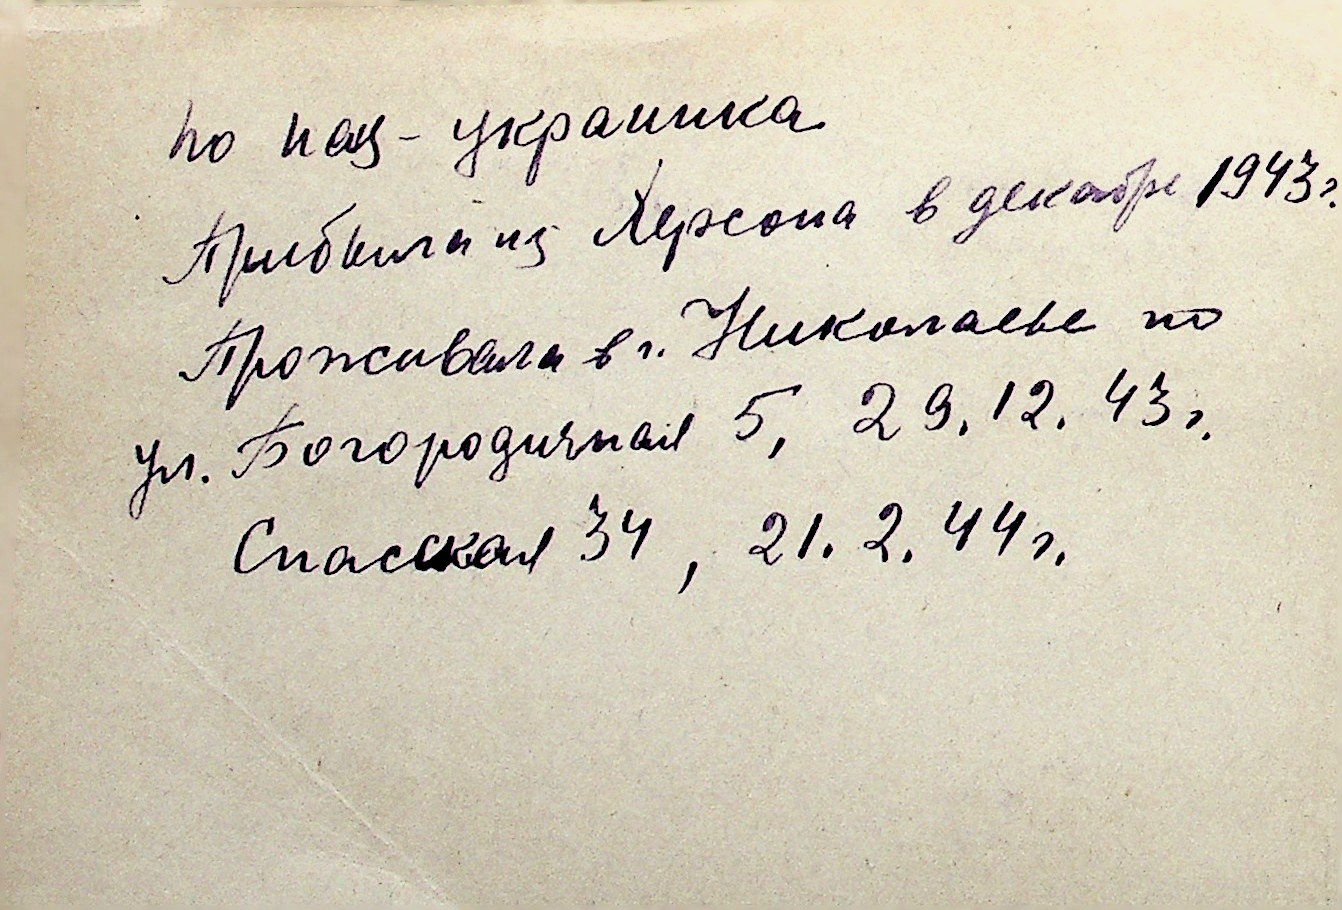 по нац - украинка
Прибыла из Херсона в декабре 1943 г.
Проживала в г. Николаеве по
ул. Богородичная 5, 29.12.43 г.
Спасская 34, 21.2.44 г.